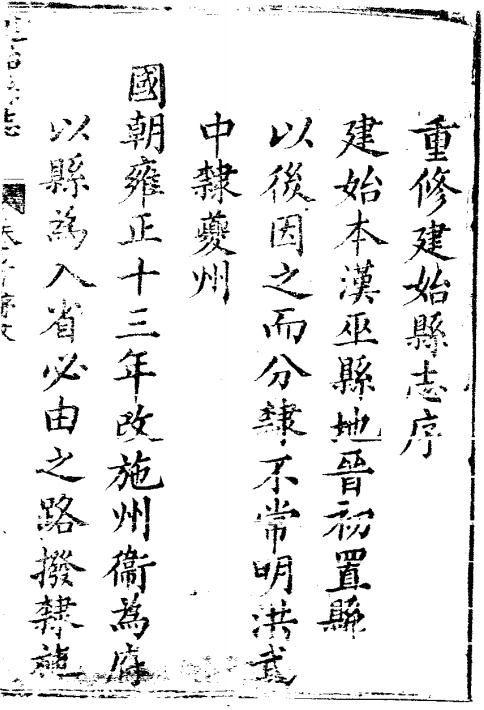 重修建始縣志序
建始本漢巫縣地晉初置縣
以後因之而分隸不常明洪武
中隸夔州
國朝雍正十三年改施州衞為府
以縣為入省必由之路撥隸施
建始縣志